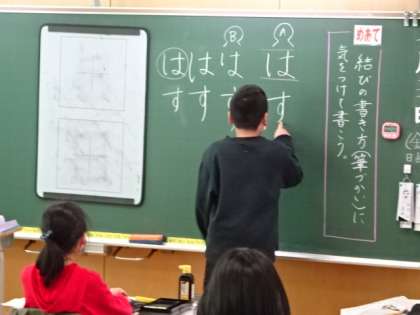 めあて
結びの書き方(筆づかい)に
気をつけて書こう。
A
は
す
B
は
す
は
す
は
す